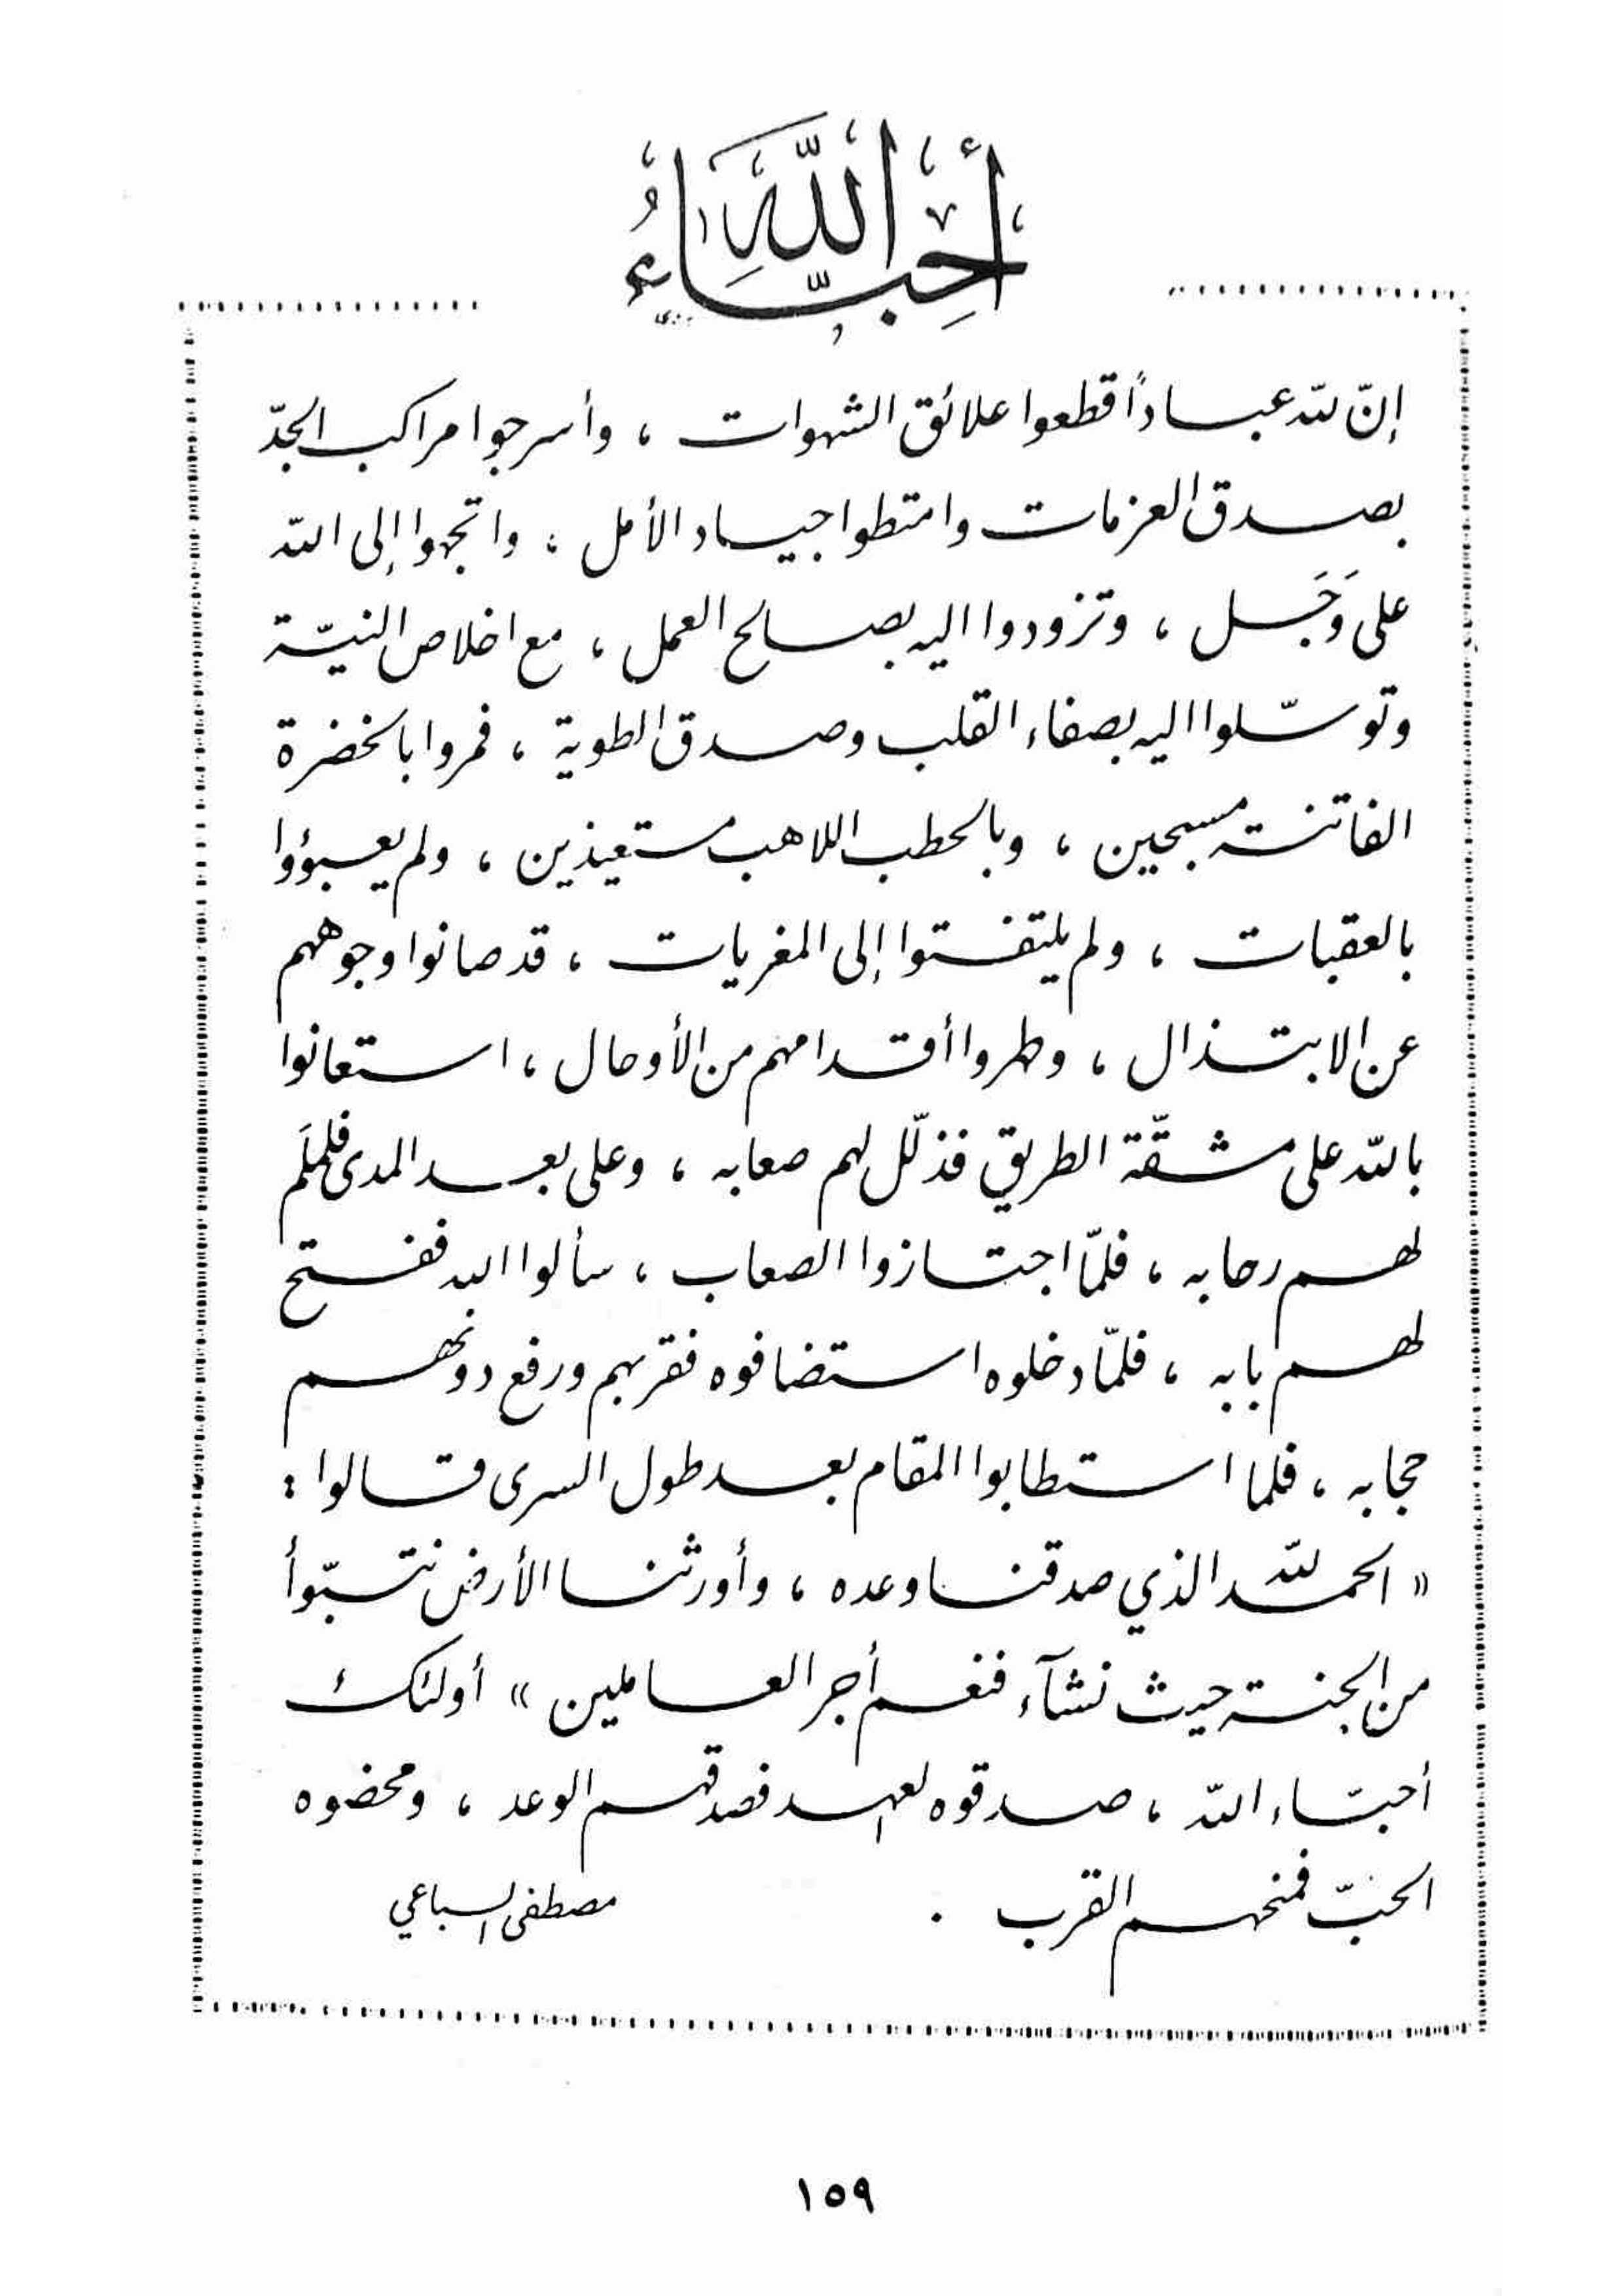 أَحِبَّاءُ اللَّهِ
إنّ لله عباداً قطعوا علائق الشهوات ، وأسرجوا مراكب الجدّ
بصدق العزمات وامتطوا جياد الأمل ، واتجهوا إلى الله
على وَجَل ، وتزودوا اليه بصالح العمل ، مع اخلاص النيّة
وتوسّلوا اليه بصفاء القلب وصدق الطوية ، فمروا بالخضرة
الفاتنة مسبحين ، وبالحطب اللاهب مستعيذين ، ولم يعبؤوا
بالعقبات ، ولم يلتفتوا إلى المغريات ، قد صانوا وجوههم
عن الابتذال ، وطهروا أقدامهم من الأوحال ، استعانوا
بالله على مشقّة الطريق فذلّل لهم صعابه ، وعلى بعد المدى فلملَم
لهم رحابه ، فلمّا اجتازوا الصعاب ، سألوا الله ففتح
لهم بابه ، فلمّا دخلوه استضافوه فقربهم ورفع دونهم
حجابه ، فلما استطابوا المقام بعد طول السرى قالوا :
« الحمد لله الذي صدقنا وعده ، وأورثنا الأرض نتبّوأ
من الجنة حيث نشآء فنعم أجر العاملين » أولئك
أحبّاء الله ، صدقوه العهد فصدقهم الوعد ، ومحضوه
الحبّ فمنحهم القرب .
مصطفى السباعي
١٥٩